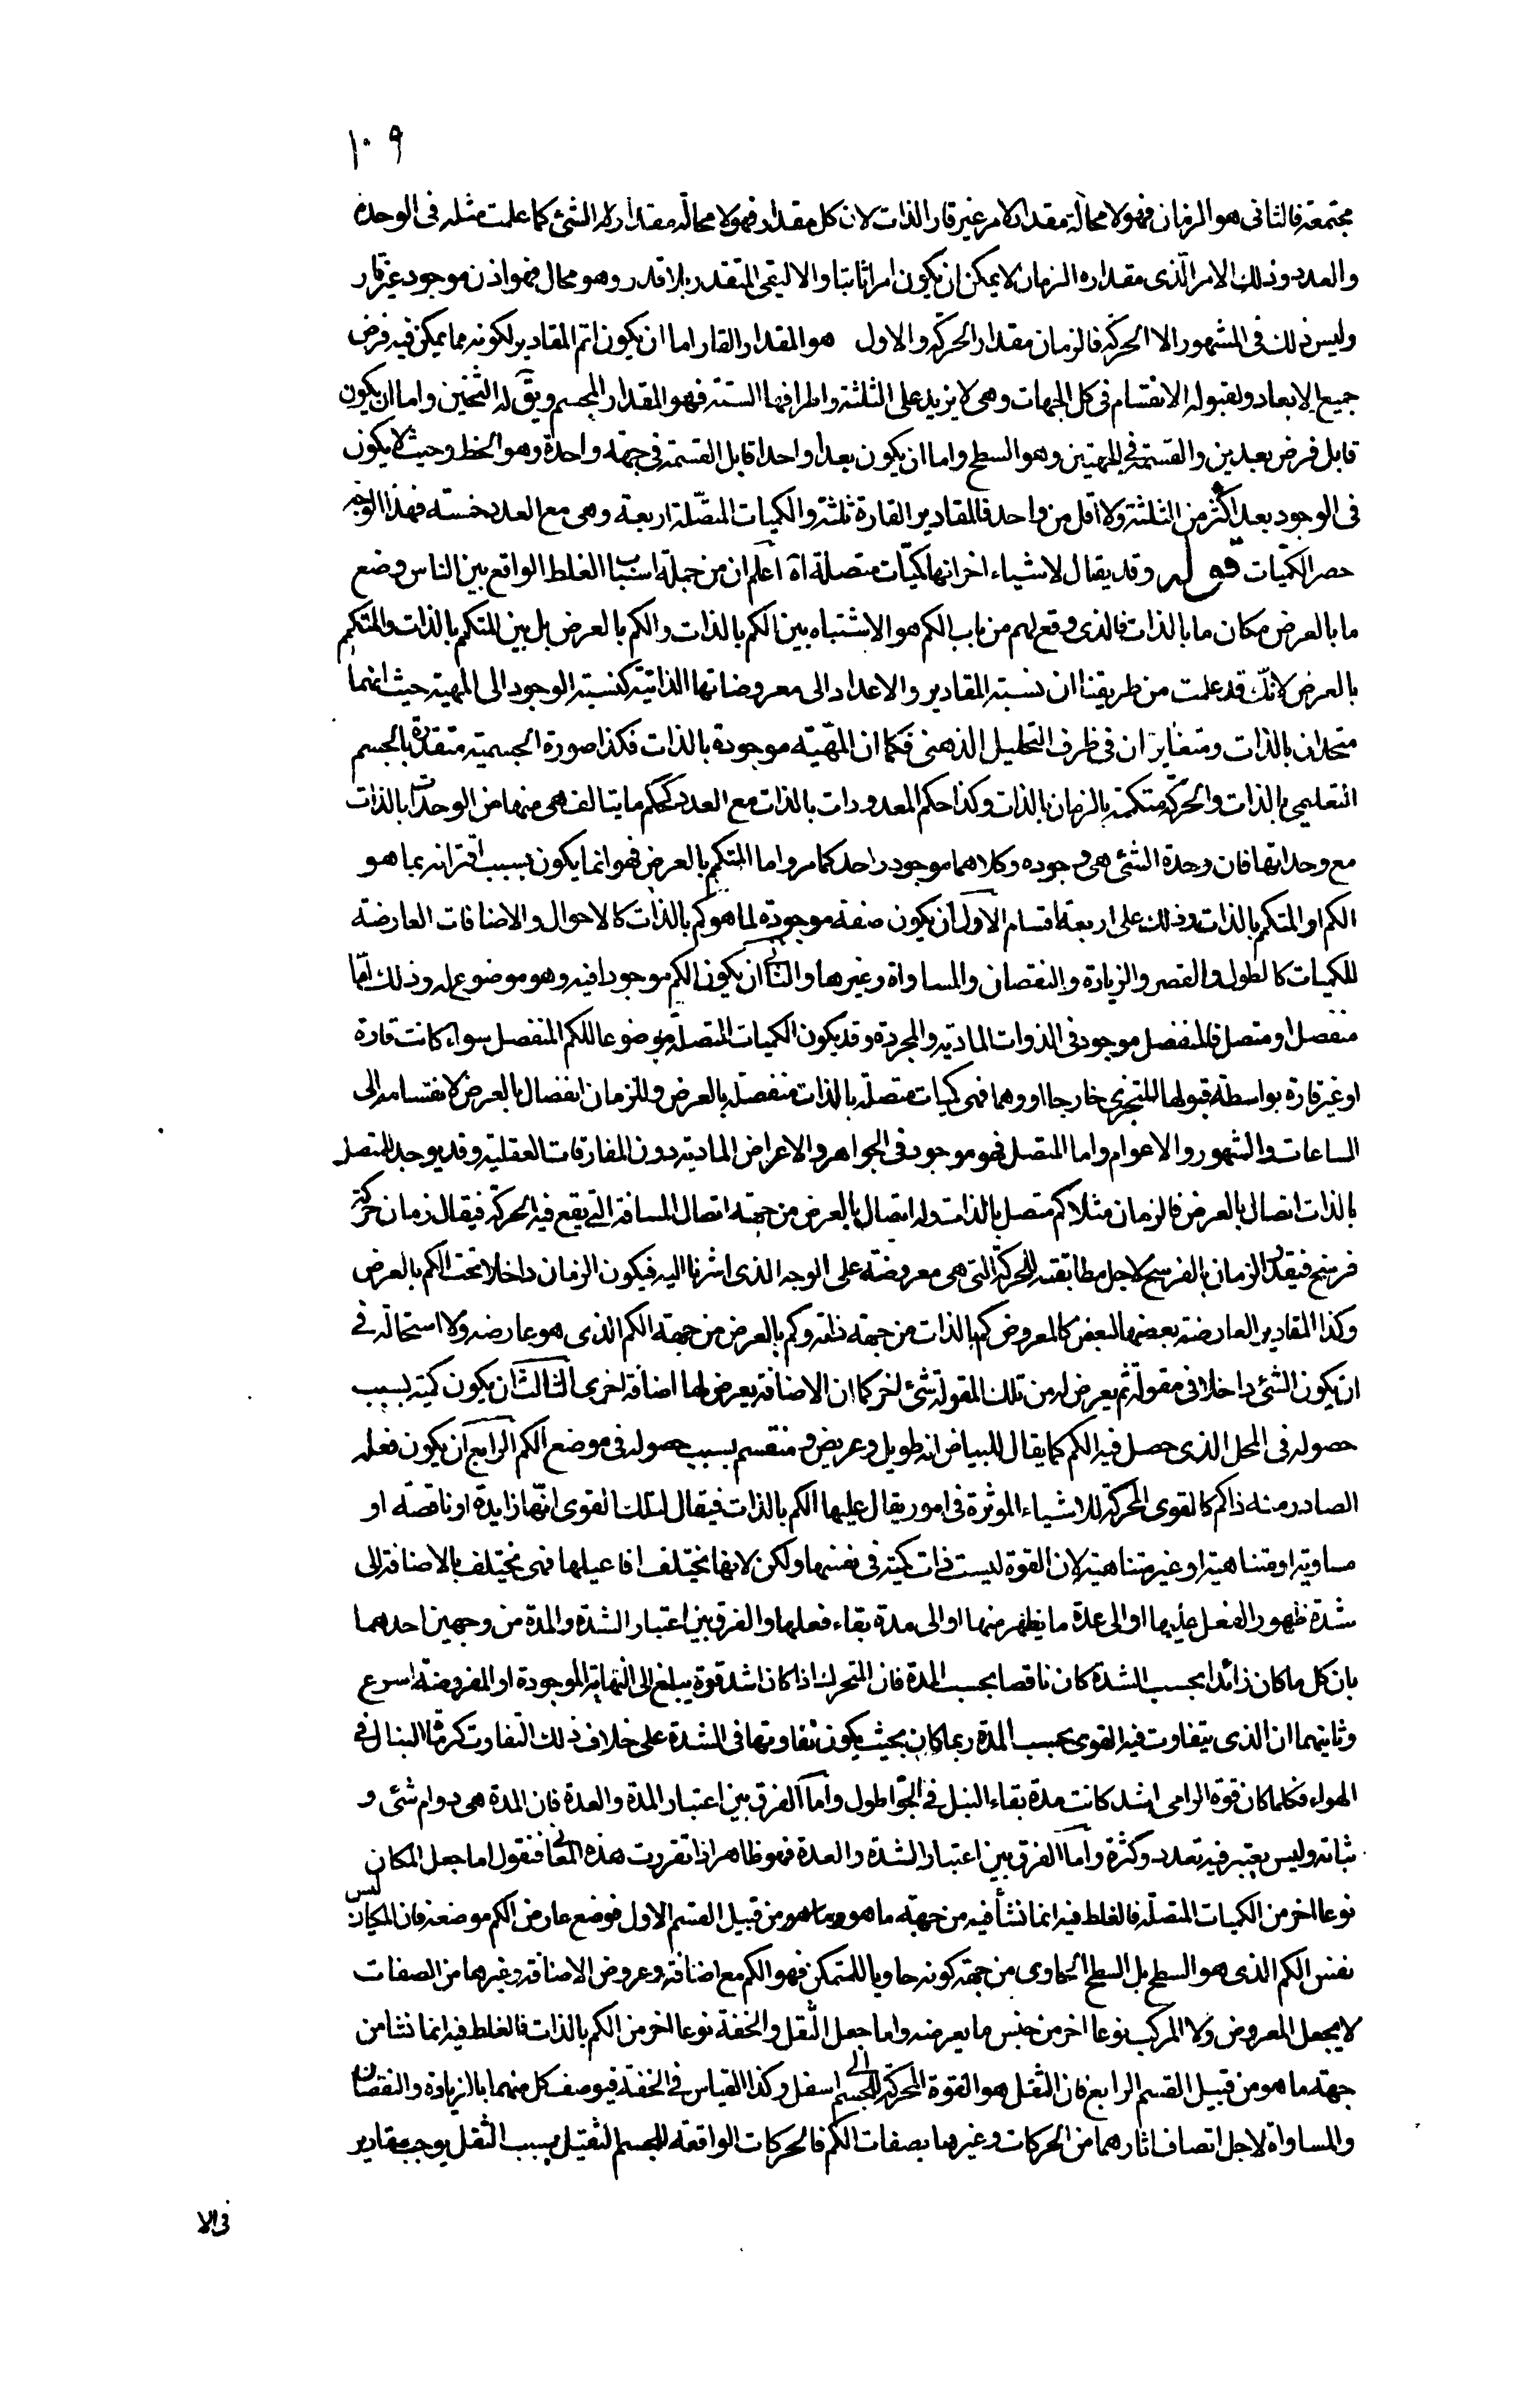 ١٠٩
مجتمعة فالثانى هو الزمان فهو لا محالة مقدار لامر غير قار الذات لان كل مقدار فهو لا محالة مقدار له الشئ كما علمت مثله فى الوحدة
والعدد وذلك الامر الّذى مقداره الزمان لا يمكن ان يكون امرا ثابتا والا لبقى المتقدر بلا قدر وهو محال فهو اذن موجود غير قار
وليس ذلك فى المشهور الا الحركة فالزمان مقدار الحركة والاول هو المقدار القار اما ان يكون اتم المقادير لكونه مما يمكن فيه فرض
جميع الابعاد ولقبوله الانقسام فى كل الجهات وهى لا يزيد على الثلثة واطرافها الستة فهو المقدار المجسم ويقّ له الثخين واما ان يكون
قابل فرض بعدين والقسمة فى الجهتين وهو السطح واما ان يكون بعدا واحدا قابل القسمة فى جهة واحدة وهو الخط وحيث لا يكون
فى الوجود بعد اكثر من الثلثة ولا اقل من واحد فالمقادير القارة ثلثة والكميات المتصّلة اربعة وهى مع العدد خمسة فهذا الوجه
حصر الكمّيات قوله وقد يقال لاشياء اخر انها كميّات متصلة اه اعلم ان من جملة اسباب الغلط الواقع بين الناس وضع
ما بالعرض مكان ما بالذات فالذى وقع لهم من باب الكم هو الاشتباه بين الكم بالذات والكم بالعرض بل بين المتكمم بالذات والمتكمم
بالعرض لانّك قد علمت من طريقنا ان نسبة المقادير والاعداد الى معروضاتها الذاتيّة كنسبة الوجود الى المهية حيث انهما
متحدان بالذات ومتغايران فى ظرف التحليل الذهنى فكما ان المهيّة موجودة بالذات فكذا صورة الجسمية متقدرة بالجسم
التعليمى بالذات والحركة متكممة بالزمان بالذات وكذا حكم المعدودات بالذات مع العدد كحكم ما يتالف هى منها من الوحدات بالذات
مع وحداتها فان وحدة الشئ هى وجوده وكلاهما موجود واحد كما مر واما المتكمم بالعرض فهو انما يكون بسبب اقترانه بما هو
الكم او المتكمم بالذات وذلك على اربعة اقسام الاول ان يكون صفة موجودة لما هو كم بالذات كالاحوال والاضافات العارضة
للكميات كالطول والقصر والزيادة والنقصان والمساواة وغيرها والثانى ان يكون الكم موجودا فيه وهو موضوع له وذلك امّا
منفصل او متصل فالمنفصل موجود فى الذوات المادية والمجردة وقد يكون الكميات المتصلة موضوعا للكم المنفصل سواء كانت قارة
او غير قارة بواسطة قبولها للتجزى خارجا او وهما فهى كميات متصلة بالذات منفصلة بالعرض وللزمان انفصال بالعرض لانقسامه الى
الساعات والشهور والاعوام واما المتصل فهو موجود فى الجواهر والاعراض المادية دون المفارقات العقلية وقد يوجد للمتصل
بالذات اتصال بالعرض فالزمان مثلا كم متصل بالذات وله اتصال بالعرض من جهة اتصال المسافة التى يقع فيه الحركة فيقال زمان حركة
فرسخ فيقدر الزمان بالفرسخ لاجل مطابقته للحركة التى هى معروضة على الوجه الذى اشرنا اليه فيكون الزمان داخلا تحت الكم بالعرض
وكذا المقادير العارضة بعضها لبعض كالمعروض كم بالذات من جهة ذاته وكم بالعرض من جهة الكم الذى هو عارضه ولا استحالة فى
ان يكون الشئ داخلا فى مقولة ثم يعرض له من تلك المقولة شئ اخر كما ان الاضافة يعرض لها اضافة اخرى الثالث ان يكون كميّته بسبب
حصوله فى المحل الذى حصل فيه الكم كما يقال للبياض انه طويل وعريض و منقسم بسبب حصوله فى موضع الكم الرابع ان يكون فعله
الصادر منه ذا كم كالقوى المحركة للاشياء الموثرة فى امور يقال عليها الكم بالذات فيقال لتلك القوى انّها زايدة او ناقصة او
مساوية او متناهية او غير متناهية لان القوة ليست ذات كمية فى نفسها ولكن لانها يختلف افاعيلها فهى يختلف بالاضافة الى
شدة ظهور الفعل عليها او الى عدة ما يظهر منها او الى مدة بقاء فعلها والفرق بين اعتبار الشدة والمدة من وجهين احدهما
بان كل ما كان زائدا بحسب الشدة كان ناقصا بحسب المدة فان المتحرك اذا كان اشد قوة يبلغ الى النهاية الموجودة او المفروضة اسرع
وثانيهما ان الذى يتفاوت فيه القوى بحسب المدة ربما كان بحيث يكون تفاوتها فى الشدة على خلاف ذلك التفاوت كرماة النبال فى
الهواء فكلما كان قوة الرامى اشد كانت مدة بقاء النبل فى الجوّ اطول واما الفرق بين اعتبار المدة والعدة فان المدة هى دوام شئ و
ثباته وليس يعتبر فيه تعدد وكثرة واما الفرق بين اعتبار الشدة والعدة فهو ظاهر اذا تقررت هذه المعانى فنقول اما جعل المكان
نوعا اخر من الكميات المتصلة فالغلط فيه انما نشأ فيه من جهة ما هو من قبيل القسم الاول فوضع عارض الكم موضعه فان المكان ليس
نفس الكم الذى هو السطح بل السطح الحاوى من جهة كونه حاويا للمتمكن فهو الكم مع اضافة وعروض الاضافة وغيرها من الصفات
لا يجعل المعروض ولا المركب نوعا اخر من جنس ما يعرضه واما جعل الثقل والخفة نوعا اخر من الكم بالذات فالغلط فيه انما نشا من
جهة ما هو من قبيل القسم الرابع فان الثقل هو القوة المحركة للجسم الى اسفل وكذا القياس فى الخفة فيوصف كل منهما بالزيادة والنقصان
والمساواة لاجل اتصاف اثارهما من الحركات وغيرها بصفات الكم فالحركات الواقعة للجسم الثقيل بسبب الثقل يوجب مقادير
فى الا